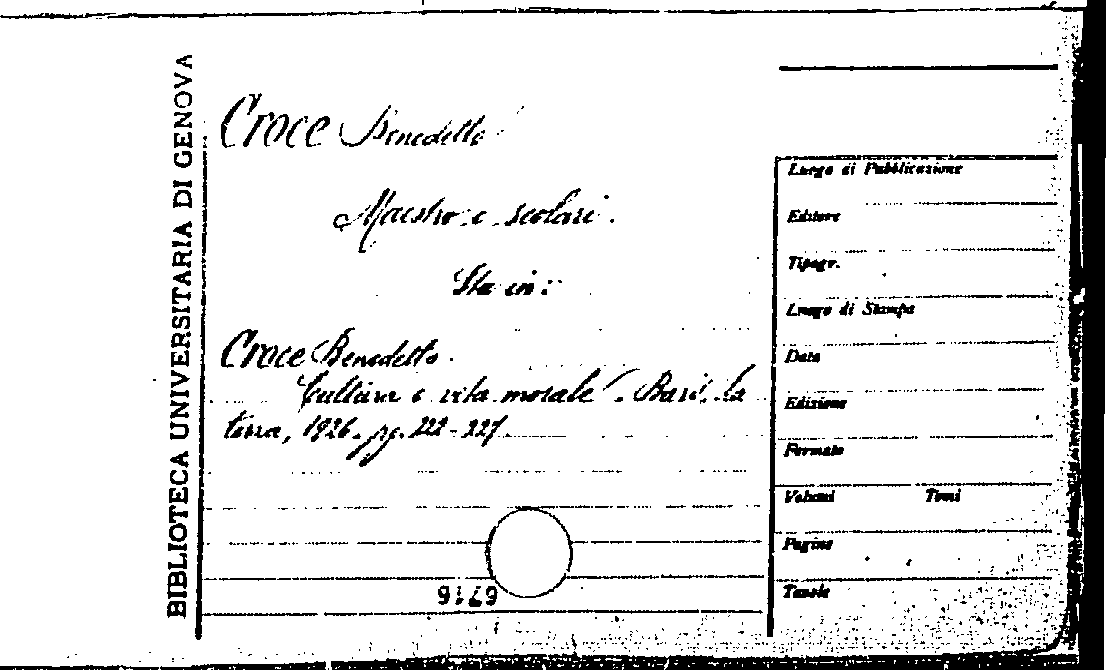 BIBLIOTECA UNIVERSITARIA DI GENOVA
Croce Benedetto
Maestro e scolari.
Sta in:
Croce Benedetto.
Cultura e vita morale. Bari, la
terza, 1926. pg. 222-227
Luogo di Pubblicazione
Editore
Tipogr.
Luogo di Stampa
Data
Edizione
Formato
Volumi Tomi
Pagine
Tavole